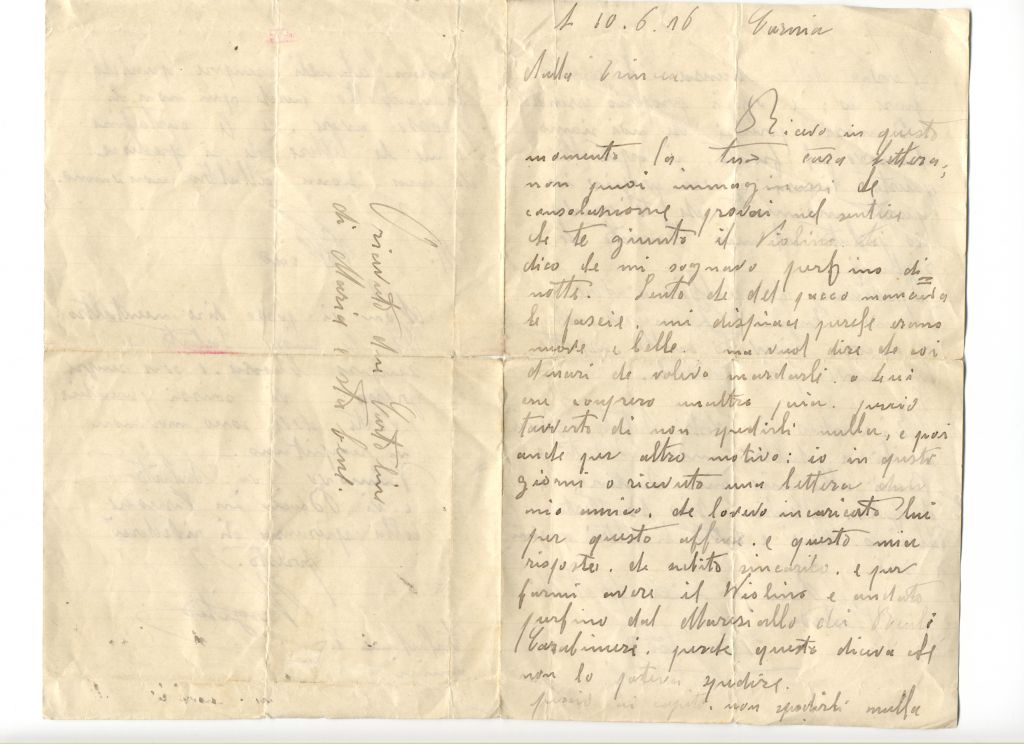 10.6.16 Carnia
Ricevo in questo
momento la tua cara lettera,
non puoi immaginarsi de
consolazione provai nel sentire
che te giunto il Violino ti
dico de mi sognavo perfino di
notte. Sento de del pacco mancava
le fascie. mi dispiace perche erano
nuove e belle. ma vuol dire de coi
dinari de volevo mandarli. o
ne compero unaltro paia. percio
tavverto di non spedirli nulla, e poi
anche per altro motivo: io in questo
giorni o ricevuto una lettera dun
mio amico. de lovevo incaricato lui
per questo affare. e questo mia
risposto. de subito. e per
farmi avere il Violino e andato
perfino dal Maresiallo dei Reali
Carabinieri. perche questo diceva che
non lo poteva spedire.
percio ai capito. non spedirli nulla
O ricevuto due Cartoline
di Maria e sta bene.